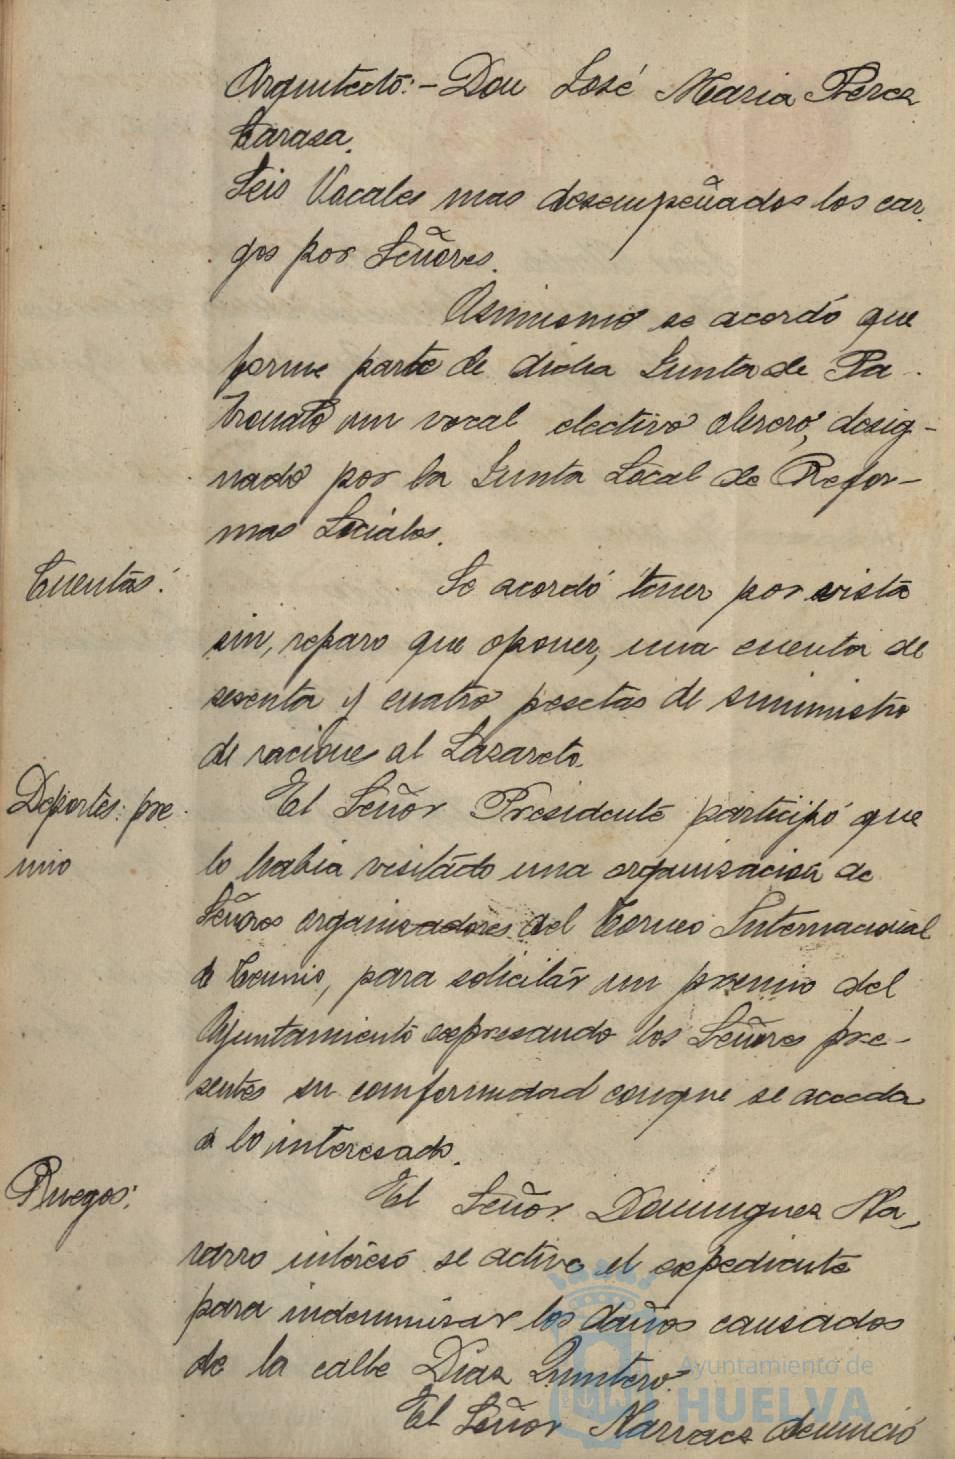 Arquitecto:- Don José Maria Perez
Carasa.
Seis Vocales mas desempeñados los car-
gos por Señores.
Asimismo se acordó que
forme parte de dicha Junta de Pa-
tronato un vocal electivo obrero, desig-
nado por la Junta Local de Refor-
mas Sociales.
Cuentas:
Se acordó tener por vista
sin, reparo que oponer, una cuenta de
sesenta y cuatro pesetas de suministro
de raciones al Lazareto.
Deportes: pre-
mio
El Señor Presidente participó que
lo habia visitado una organizacion de
Señores organizadores del Torneo Internacional
de Tennis, para solicitar un premio del
Ayuntamiento expresando los Señores pre-
sentes su comformidad conque se acceda
a lo interesado.
Ruegos:
El Señor Dominguez Na-
varro interesó se active el expediente
para indemnizar los daños causados
de la calle Diaz Quintero.
El Señor Narraez denunció
Ayuntamiento de
HUELVA